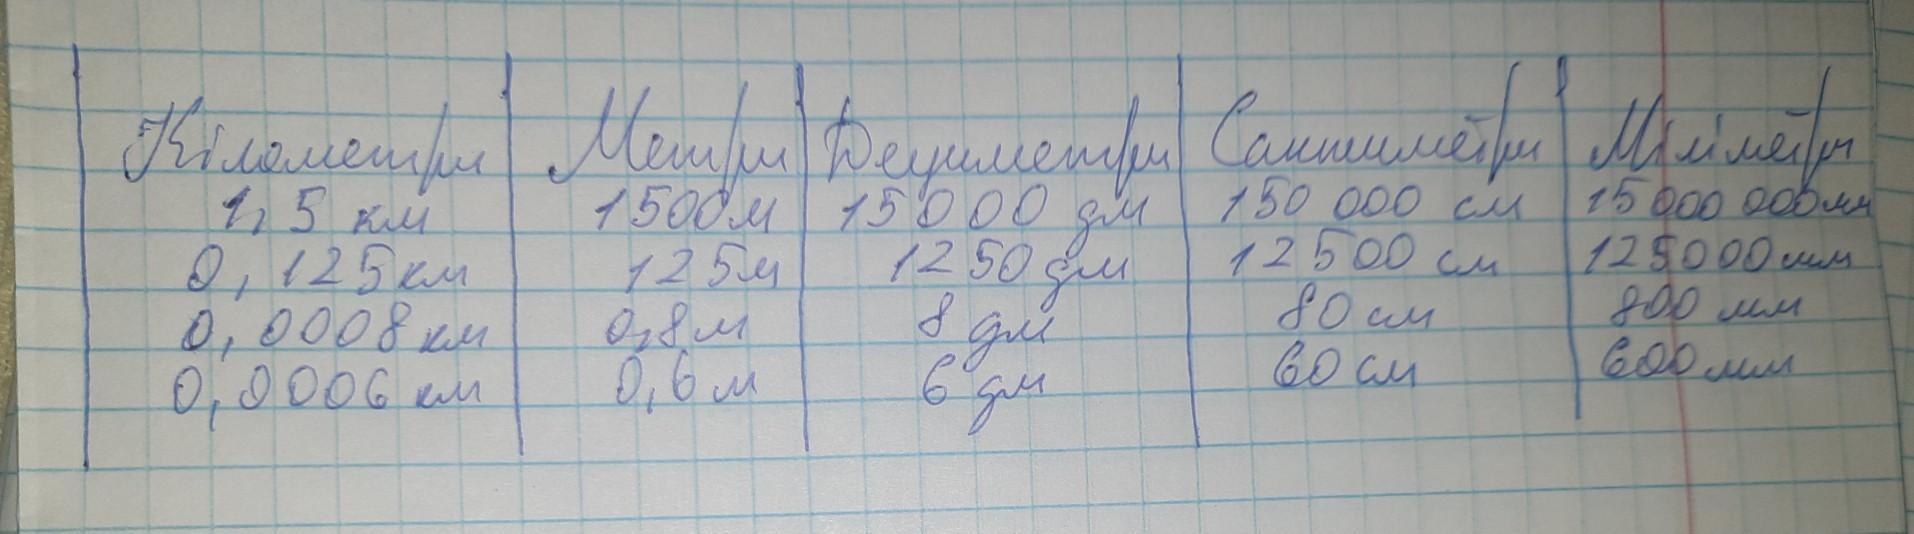 Кілометри Метри Дециметри Сантиметри Міліметри
1,5 км 1500м 15000 дм 150 000 см 15 000 000мм
0,125км 125м 1250 дм 12500 см 125000мм
0,0008км 0,8м 8 дм 80см 800 мм
0,0006км 0,6м 6 дм 60см 600мм